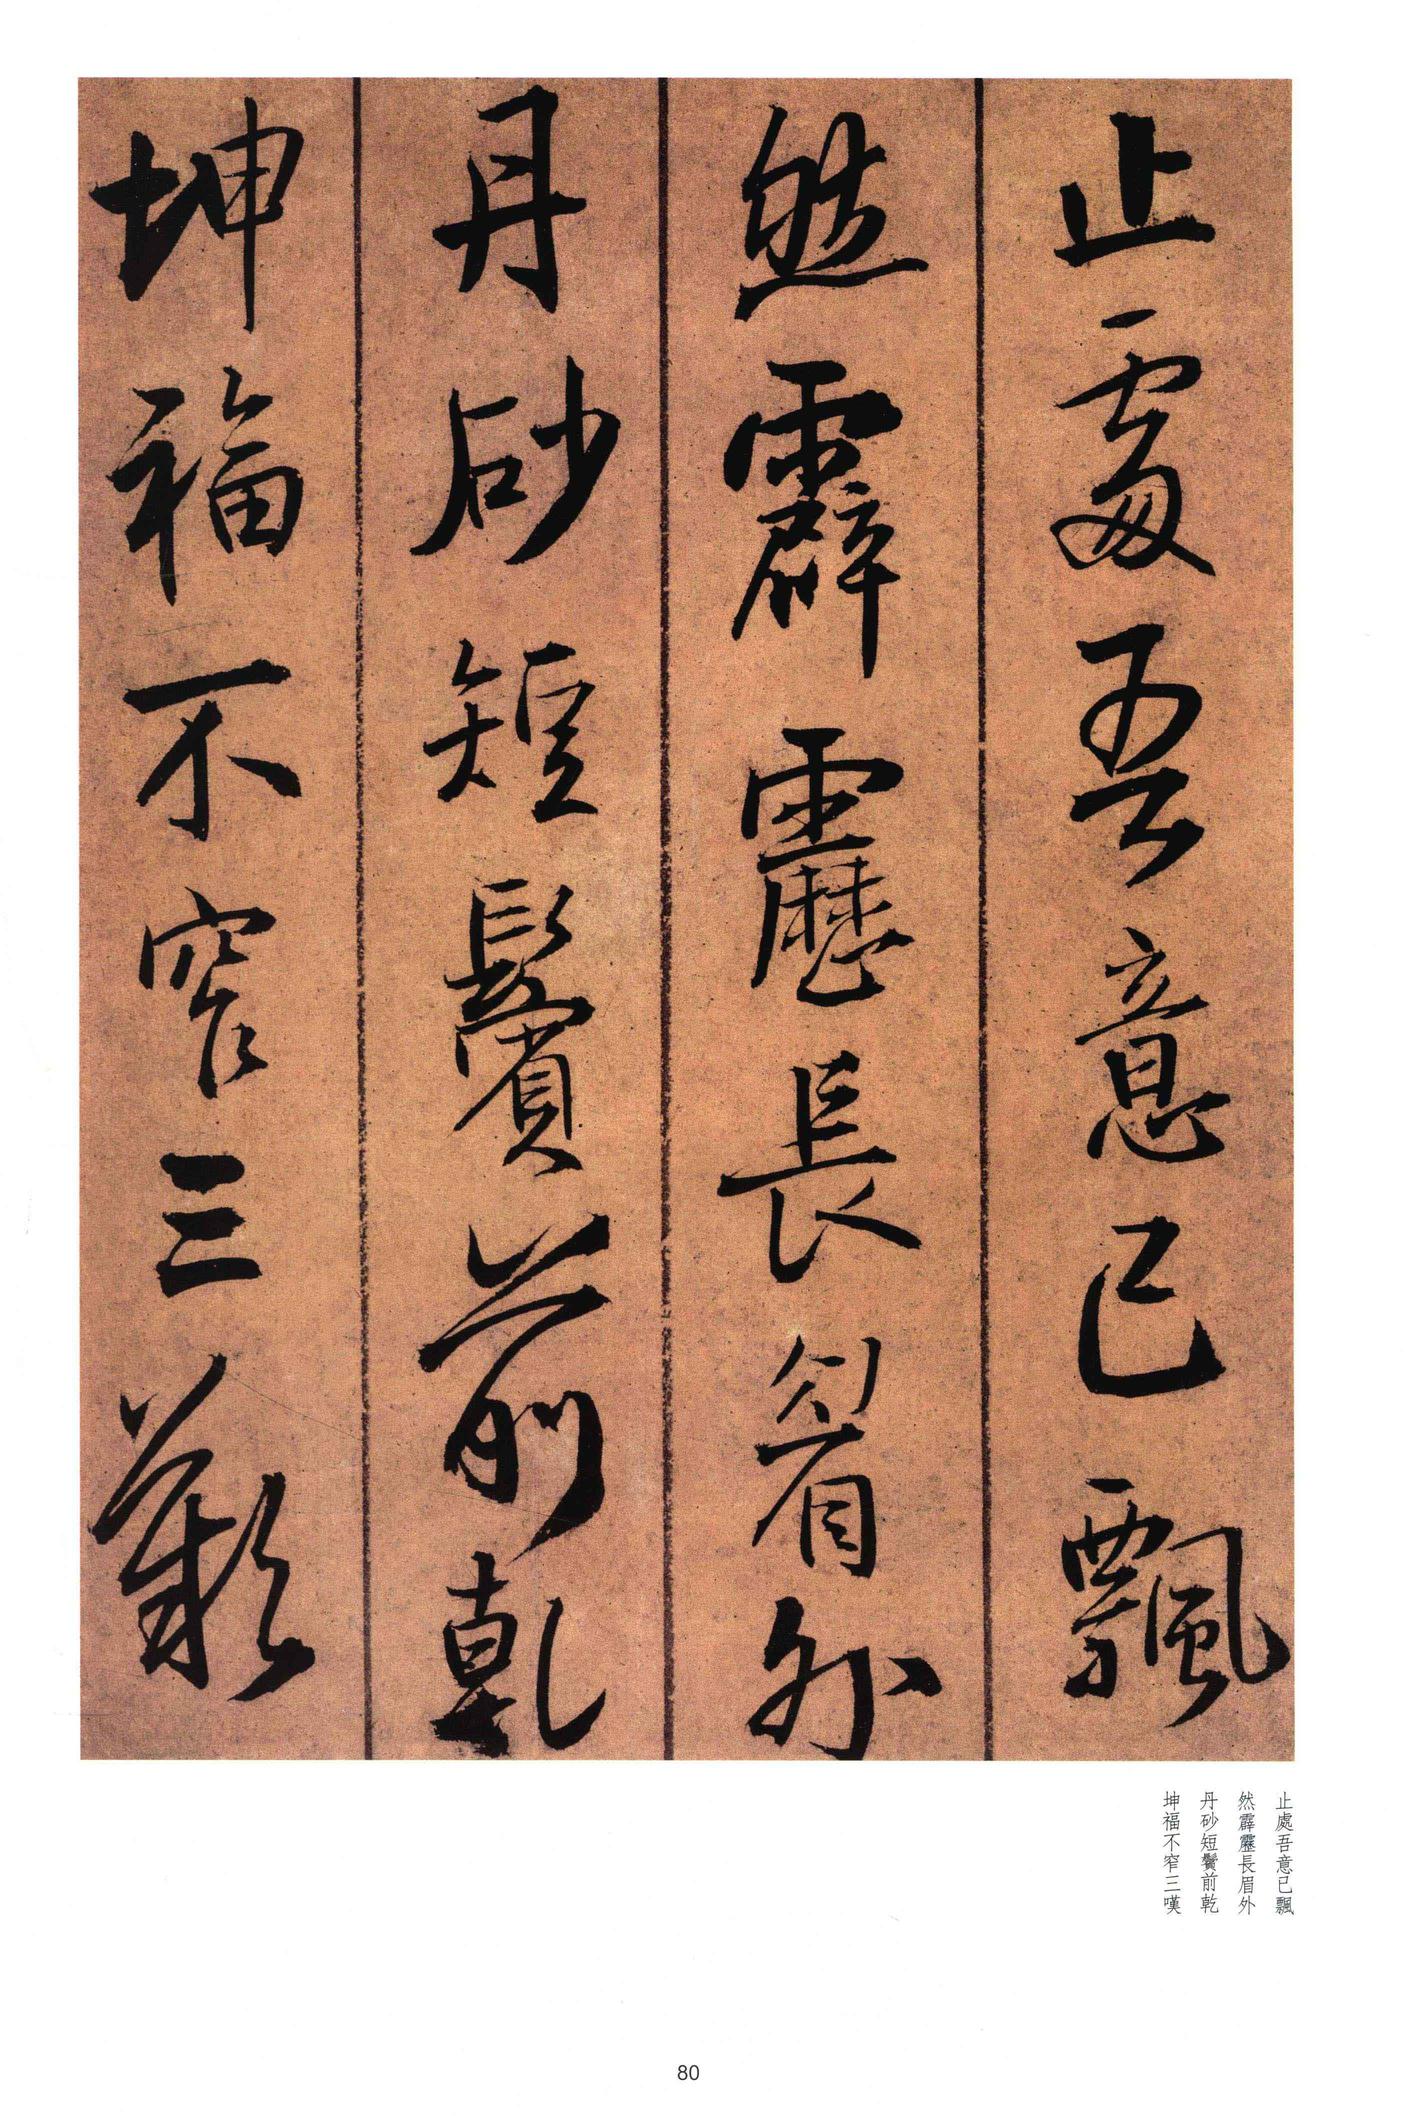 止處吾意已飄
然霹靂長眉外
丹砂短鬢前乾
坤福不窄三歎
止處吾意已飄
然霹靂長眉外
丹砂短鬢前乾
坤福不窄三嘆
80